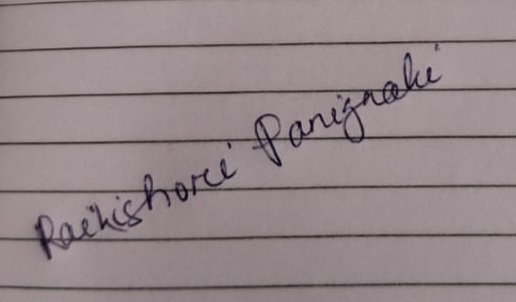 Raikishorei Panigrahi